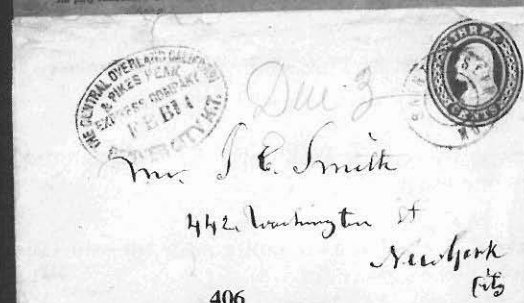 THE CENTRAL OVERLAND CALIFORNIA
& PIKES PEAK
EXPRESS COMPANY
FEB 14
DENVER CITY K.T.
Due 3
THREE
CENTS
Mr. J E. Smith
442. Washington St
New York
City
406